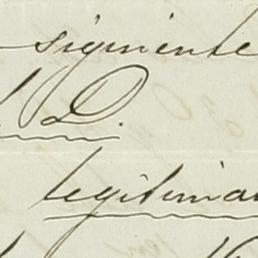 siguiente
D.
legitima